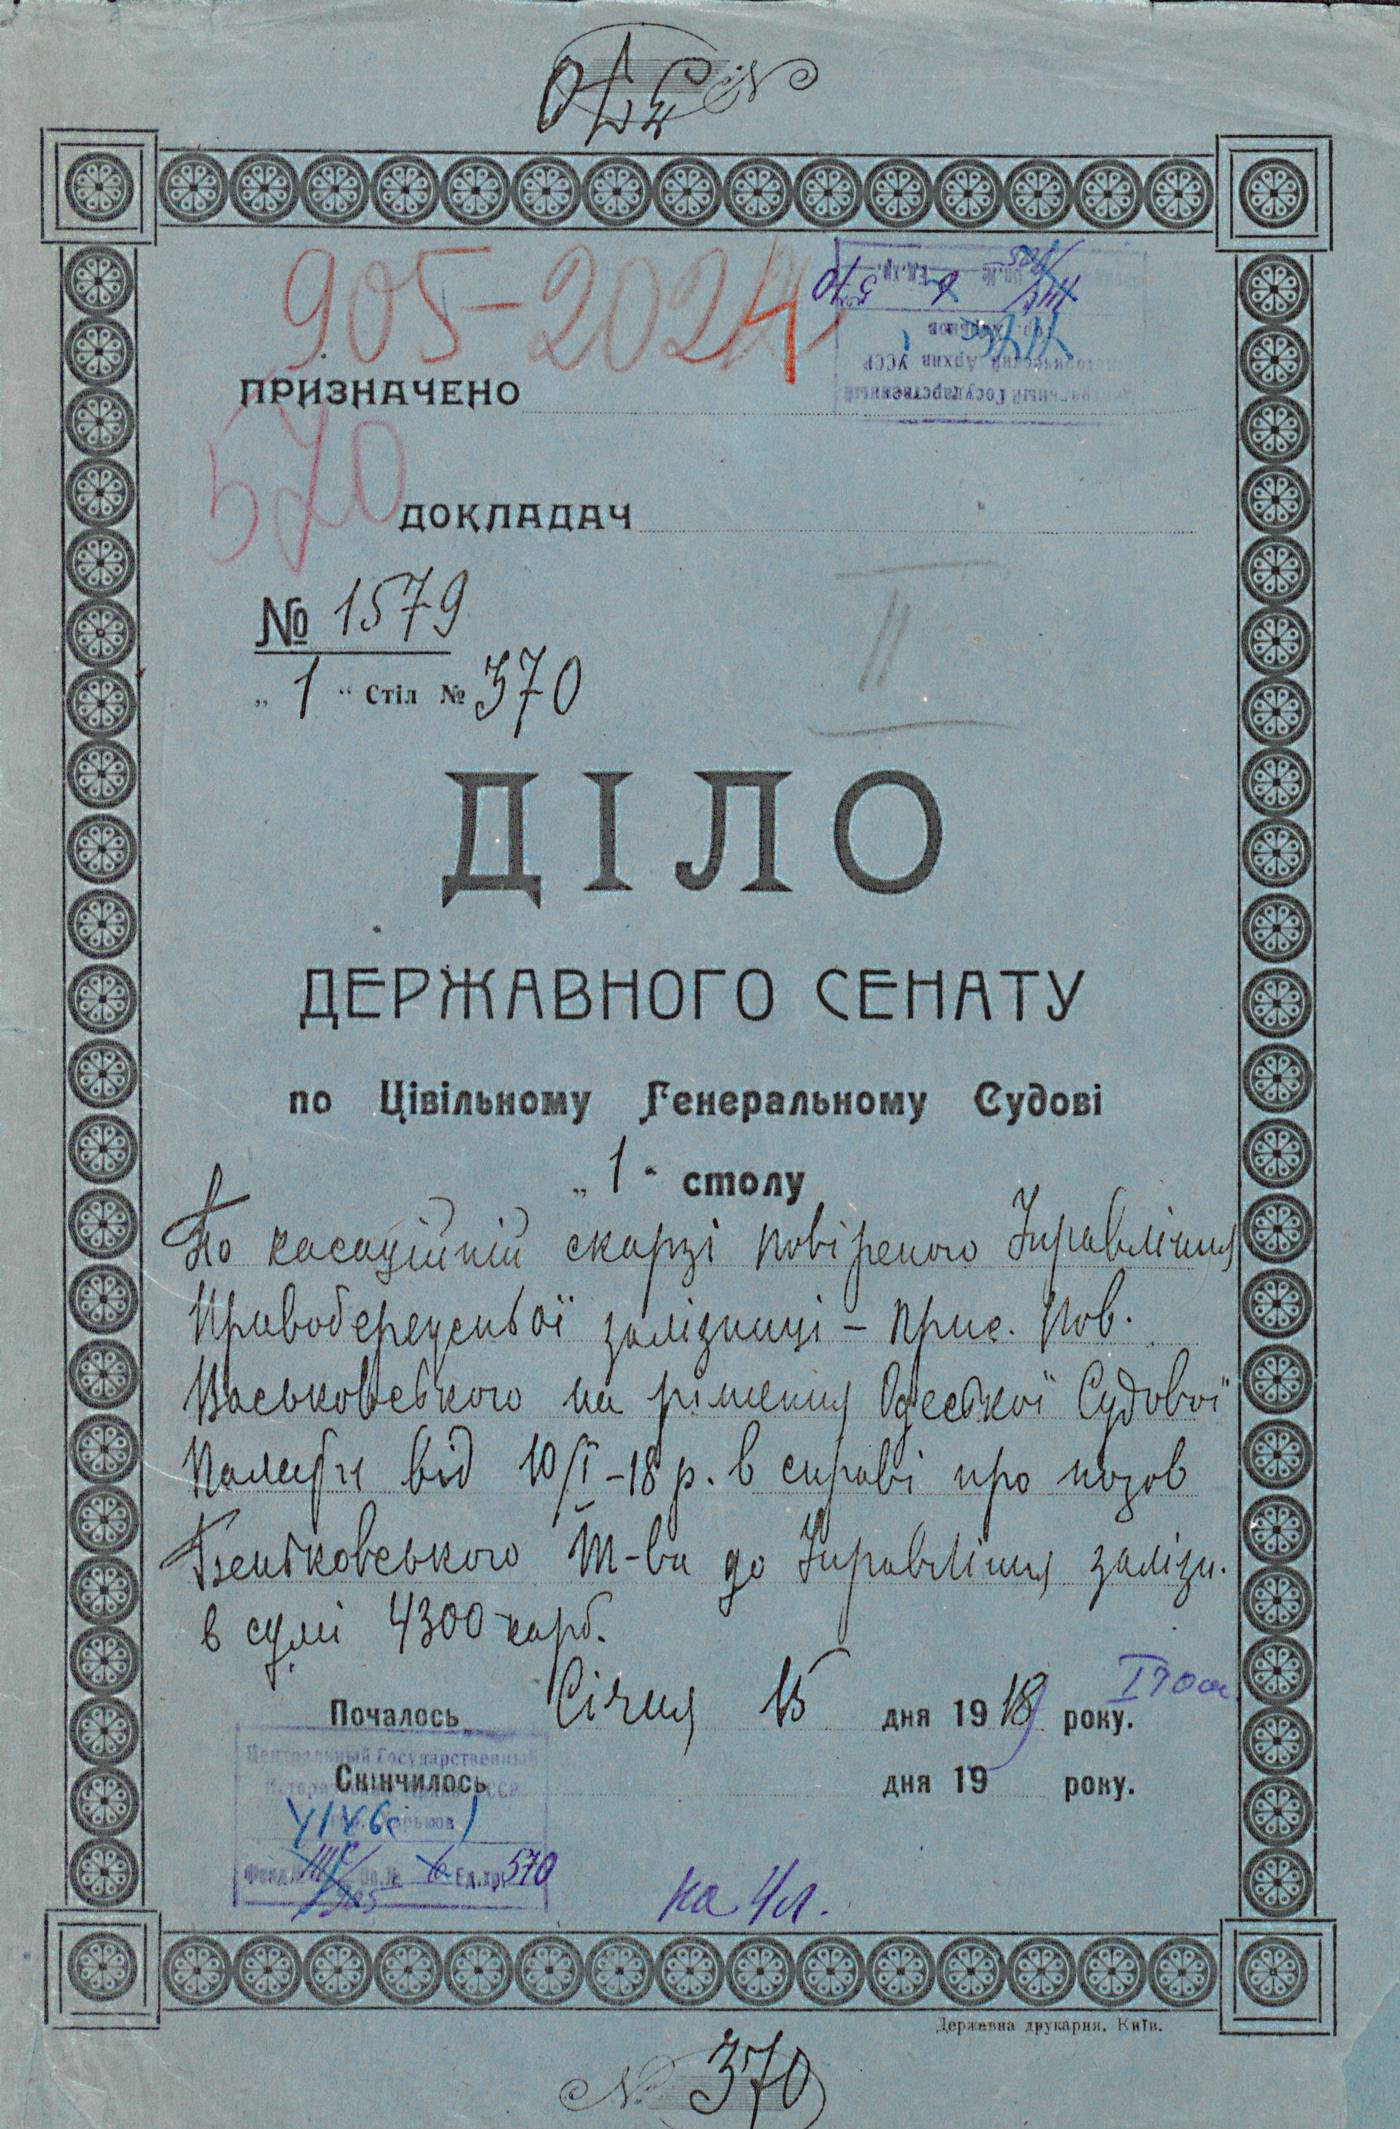 № 370
905-2024
ПРИЗНАЧЕНО
570
ДОКЛАДАЧ
№ 1579
„ 1 “ Стіл № 370
II
ДІЛО
ДЕРЖАВНОГО СЕНАТУ
по Цівільному Генеральному Судові
„ 1 “ столу
По касаційній скарзі повіреного Управління
Правобережньої залізниці – прис. пов.
Васьковського на рішення Одеської Судової
Палати від 10/I –18 р. в справі про позов
Бентковського Т-ва до Управління залізн.
в сумі 4300 карб.
Почалось Січня 15 дня 1918 року.
Скінчилось дня 19 року.
Центральный Государственный
Исторический Архив УССР
гор. Харьков
Фонд № Оп. № Ед. хр. 570
на 4 л.
Державна друкарня. Київ.
№ 370